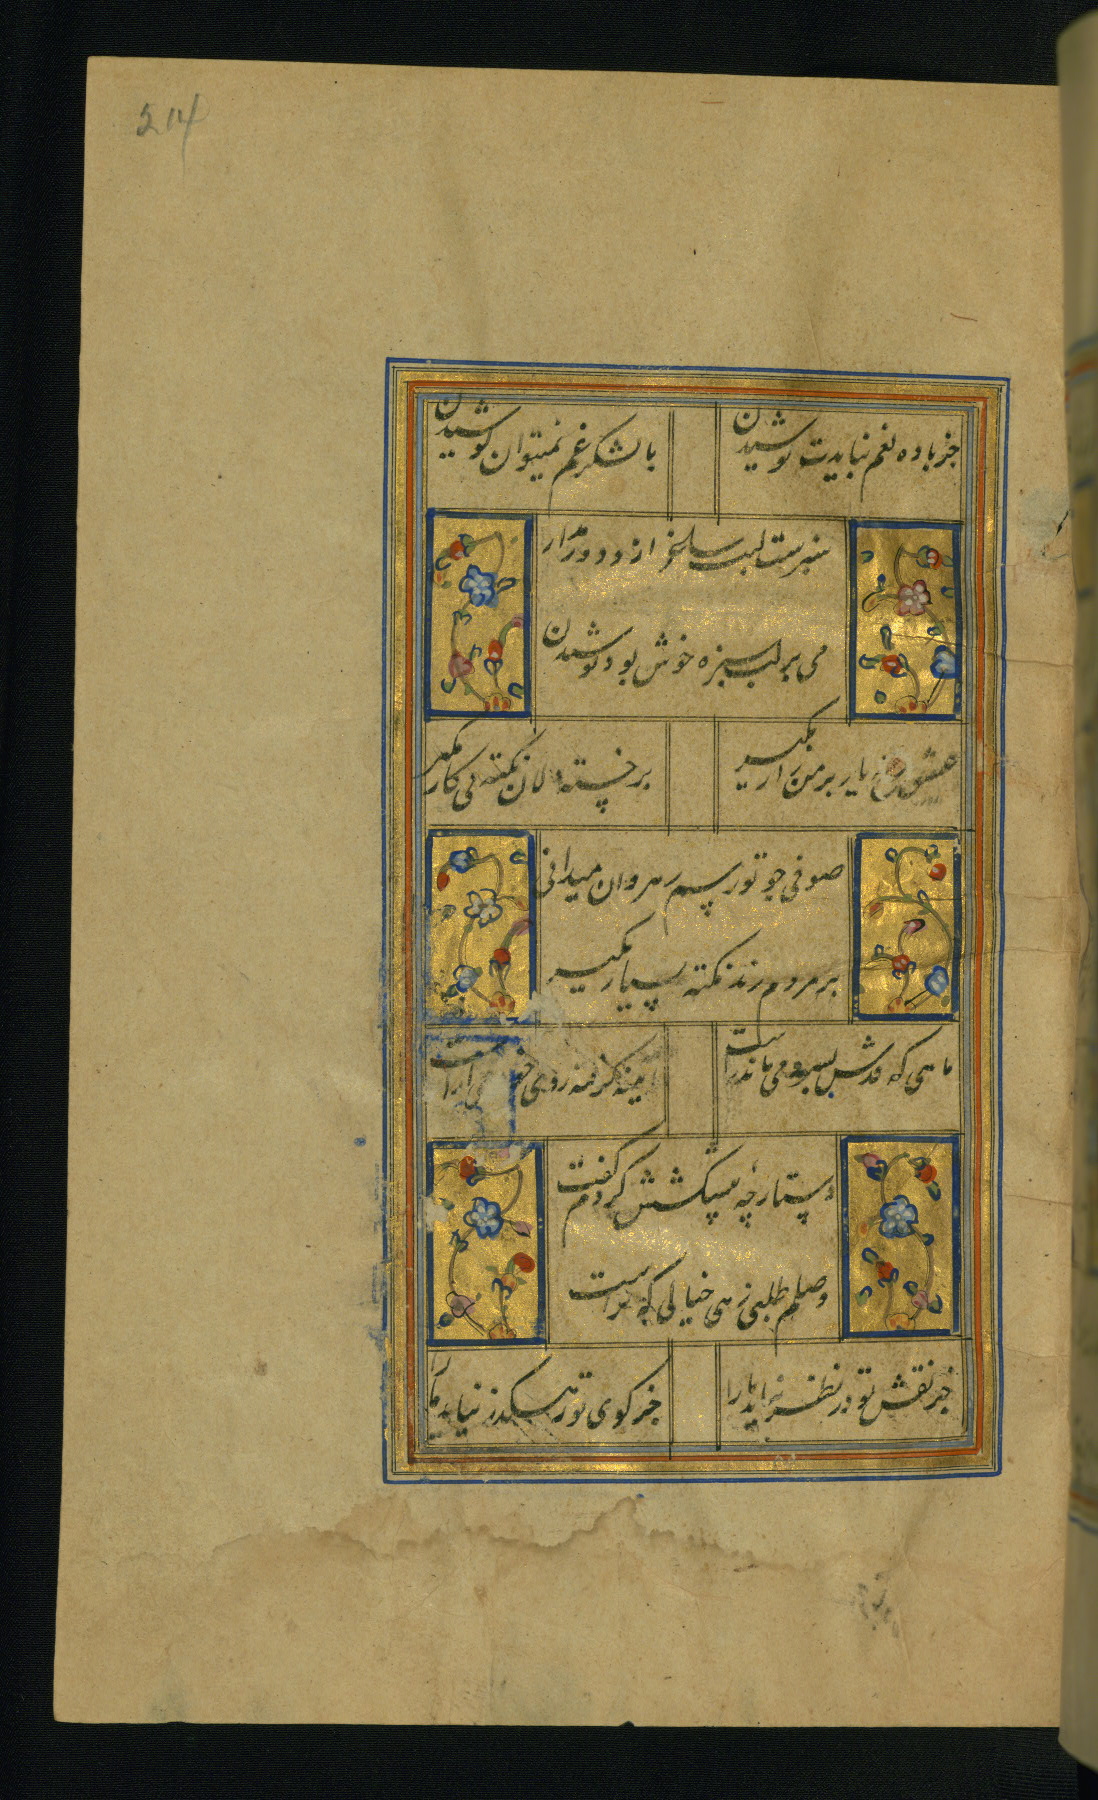 214
جز باده نغم نبایدت نوشیدن با لشکر غم نمیتوان کوشیدن
سبزست لبت ساغر از و دور مدار
می بر لب سبزه خوش بود نوشیدن
عشق رخ یار بر من زار مگیر بر خسته دلان نکته می کار مگیر
صوفی چو تو رسم رهروان میدانی
بر مردم رند نکته بسیار مگیر
ماهی که قدش بسرو می ماند راست آیینه گرفته روی خود می آراست
دستارچه پیشکشش کردم گفت
وصلم طلبی زهی خیالی که تراست
جز نقش تو در نظر نیاید ما را جز کوی تو رهگذر نیاید ما را